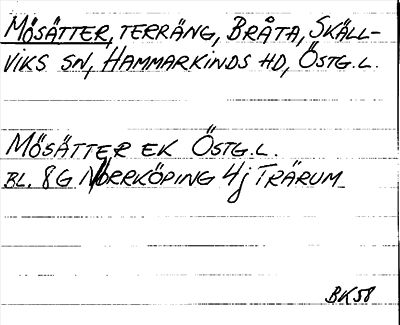 MÖSÄTTER, TERRÄNG, BRÅTA, SKÄLL-
VIKS SN, HAMMARKINDS HD, ÖSTG.L.
MÖSÄTTER EK ÖSTG.L.
BL. 8G NORRKÖPING 4j TRÄRUM
BK58